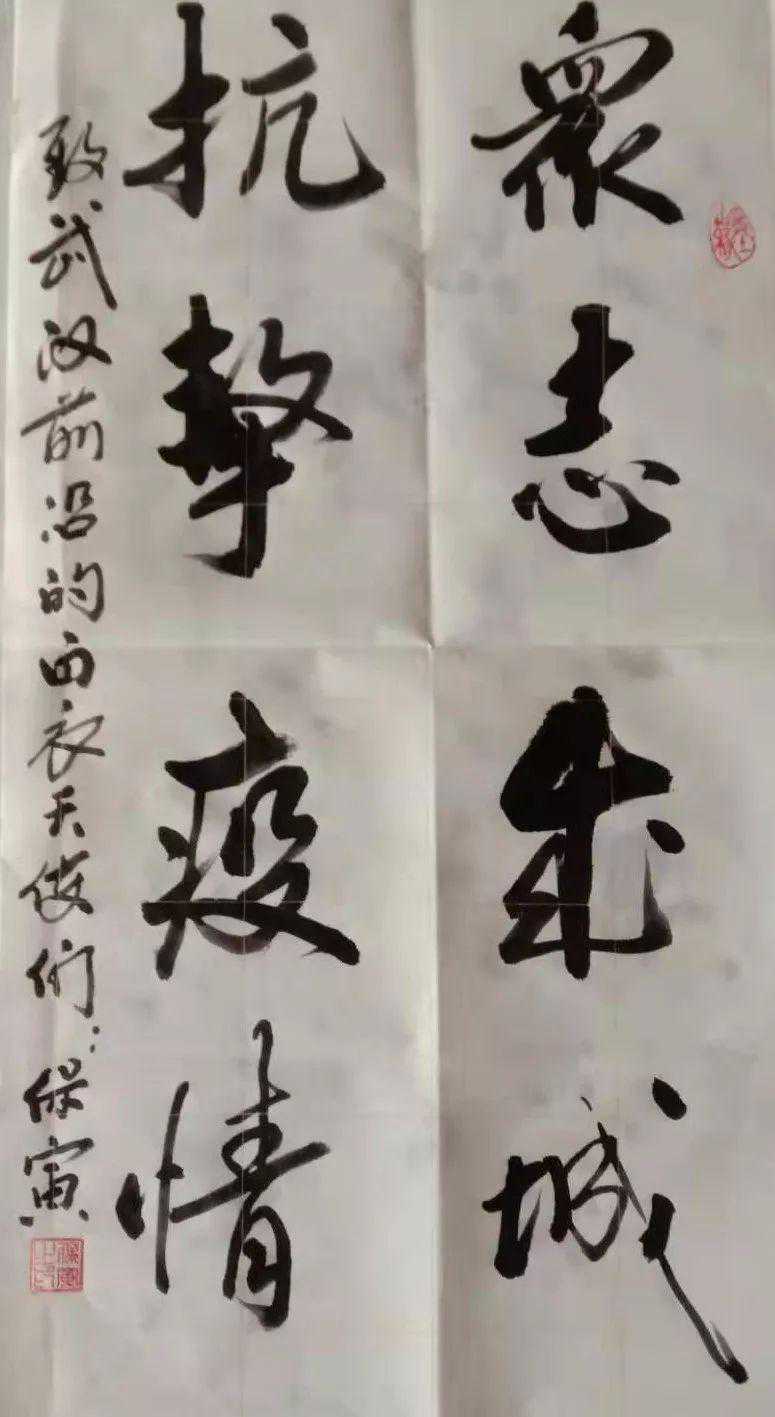 眾志成城
抗擊疫情
致武汉前沿的白衣天使们：保寅